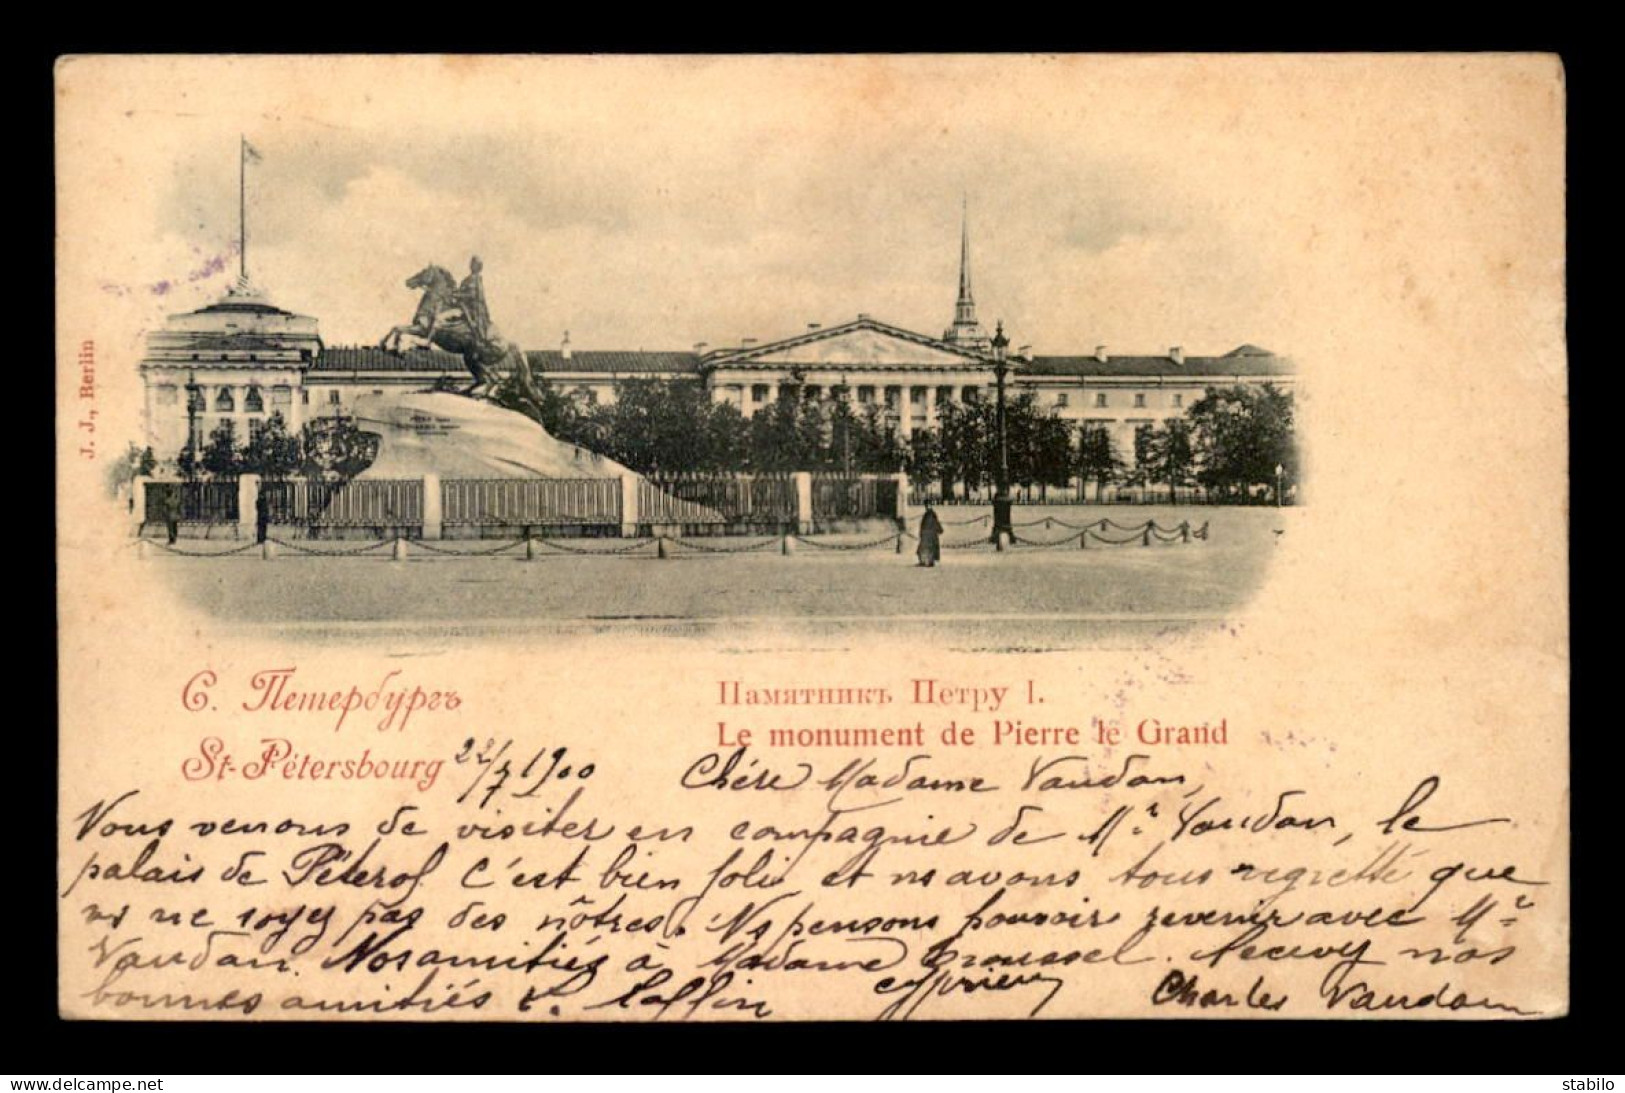 J. J., Berlin
С. Петербургъ
St-Pétersbourg
Памятникъ Петру I.
Le monument de Pierre le Grand
22/7 1900
Chére Madame Vaudan,
Vous venons de visiter en compagnie de Mr Vaudan, le
palais de Péterof. C'est bien joli et ns avons tous regretté que
vs ne soyez pas des nôtres. Ns pensons pouvoir revenir avec Mr
Vaudan. Nos amitiés à Madame Groussel. Recevez nos
bonnes amitiés Charles Vaudan
www.delcampe.net
stabilo